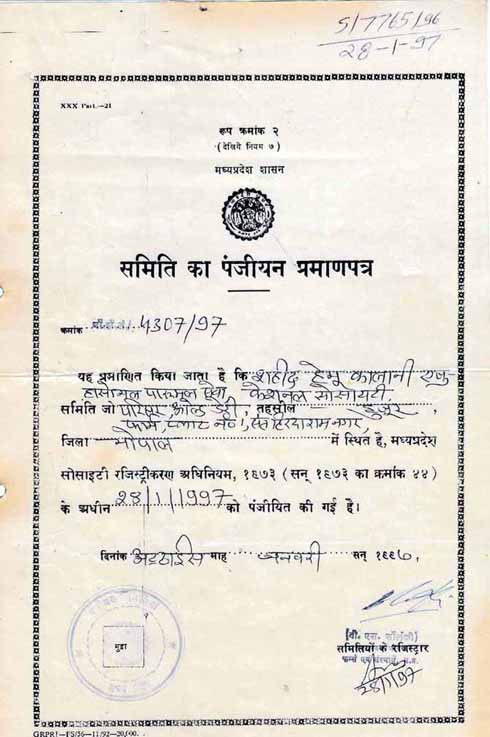 S/7765/96
28-1-97
XXX Part.—21
रूप क्रमांक २
(देखिये नियम ७)
मध्यप्रदेश शासन
समिति का पंजीयन प्रमाणपत्र
क्रमांक 4307/97
यह प्रमाणित किया जाता है कि शहीद हेमू कालानी एजु-
केशनल सोसायटी
समिति जो परिसर ओल्ड डेरी, तहसील हुजूर
फार्म, प्लाट नं० 1, संत हिरदारामनगर,
जिला भोपाल में स्थित है, मध्यप्रदेश
सोसाइटी रजिस्ट्रीकरण अधिनियम, १९७३ (सन् १९७३ का क्रमांक ४४)
के अधीन 28/1/1997 को पंजीयित की गई है।
दिनांक अट्ठाईस माह जनवरी सन् १९९७.
मुद्रा
(वी. एस. सोलंकी)
समितियों के रजिस्ट्रार
28/1/97
GRPRI—FS/56—11/92—20,000.